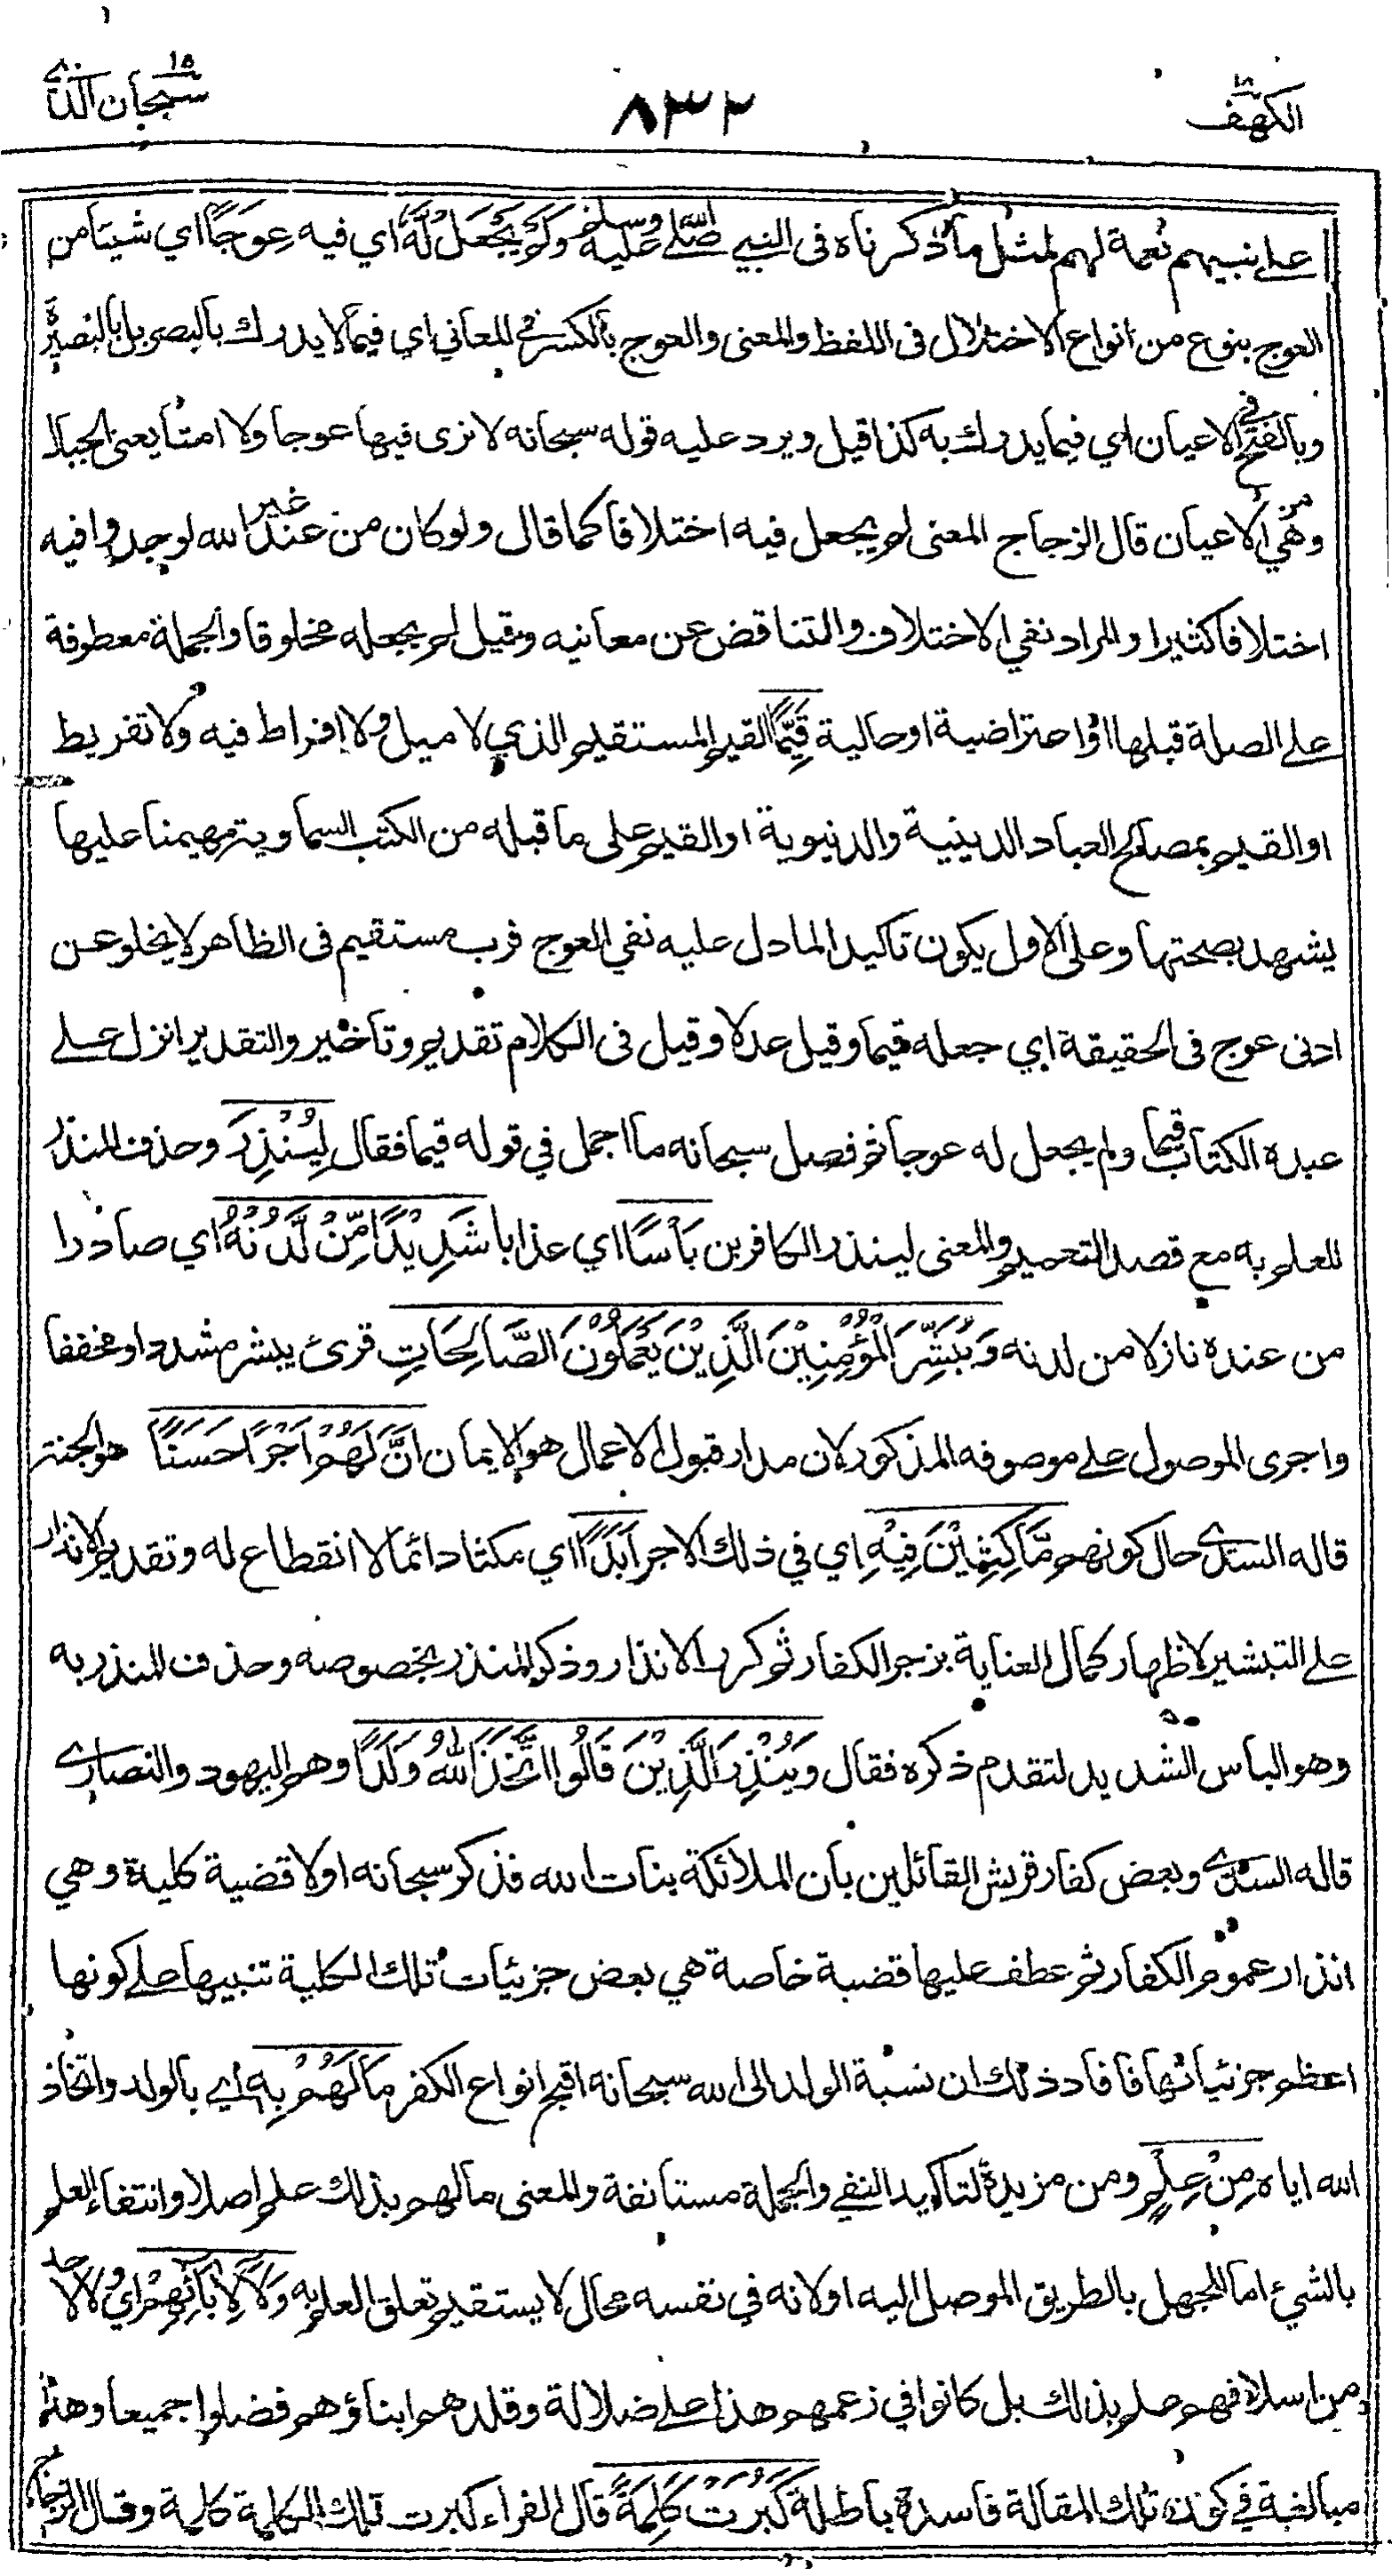 الكهف ١٨
٨٣٢
سبحان الذي ١٥
على نبيهم نعمة لهم لمثل ما ذكرناه فى النبي صلى الله عليه وسلم وَلَمْ يَجْعَل لَّهُ اي فيه عِوَجًا اي شيئا من
العوج بنوع من انواع الاختلال فى اللفظ والمعنى والعوج بالكسر في المعاني اي فيما لا يدرك بالبصر بل بالبصيرة
وبالفتح في الاعيان اي فيما يدرك به كذا قيل ويرد عليه قوله سبحانه لا ترى فيها عوجا ولا امتا يعنى الجبال
وهي من الاعيان قال الزجاج المعنى لم يجعل فيه اختلافا كما قال ولو كان من عند غير الله لوجدوا فيه
اختلافا كثيرا والمراد نفي الاختلاف والتناقض عن معانيه وقيل لم يجعله مخلوقا والجملة معطوفة
على الصلة قبلها او اعتراضية او حالية قَيِّمًا القيم المستقيم الذي لا ميل ولا افراط فيه ولا تفريط
او القيم بمصالح العباد الدينية والدنيوية او القيم على ما قبله من الكتب السماوية مهيمنا عليها
يشهد بصحتها وعلى الاول يكون تاكيدا لما دل عليه نفي العوج فرب مستقيم فى الظاهر لا يخلو عن
ادنى عوج فى الحقيقة اي جعله قيما وقيل عدلا وقيل فى الكلام تقديم وتأخير والتقدير انزل على
عبده الكتاب قيما ولم يجعل له عوجا ثم فصل سبحانه ما اجمل في قوله قيما فقال لِيُنْذِرَ وحذف المنذر
للعلم به مع قصد التعميم والمعنى لينذر الكافرين بَأْسًا اي عذابا شَدِيْدًا مِّنْ لَّدُنْهُ اي صادرا
من عنده نازلا من لدنه وَيُبَشِّرَ الْمُؤْمِنِيْنَ الَّذِيْنَ يَعْمَلُوْنَ الصَّالِحَاتِ قرئ يبشر مشددا ومخففا
واجرى الموصول على موصوفه المذكور لان مدار قبول الاعمال هو الايمان اَنَّ لَهُمْ اَجْرًا حَسَنًا هو الجنة
قاله السدي حال كونهم مَّاكِثِيْنَ فِيْهِ اي في ذلك الاجر اَبَدًا اي مكثا دائما لا انقطاع له وتقديم الانذار
على التبشير لاظهار كمال العناية بزجر الكفار ثم كرر الانذار وذكر المنذر بخصوصه وحذف المنذر به
وهو الباس الشديد لتقدم ذكره فقال وَيُنْذِرَ الَّذِيْنَ قَالُوا اتَّخَذَ اللهُ وَلَدًا وهم اليهود والنصارى
قاله السدي وبعض كفار قريش القائلين بأن الملائكة بنات الله فذكر سبحانه اولا قضية كلية وهي
انذار عموم الكفار ثم عطف عليها قضية خاصة هي بعض جزئيات تلك الكلية تنبيها على كونها
اعظم جزئياتها فافاد ذلك ان نسبة الولد الى الله سبحانه اقبح انواع الكفر مَا لَهُمْ بِهٖ اي بالولد واتخاذ
الله اياه مِنْ عِلْمٍ ومن مزيدة لتاكيد النفي والجملة مستانفة والمعنى ما لهم بذلك علم اصلا وانتفاء العلم
بالشيء اما للجهل بالطريق الموصل اليه او لانه في نفسه محال لا يستقيم تعلق العلم به وَلَا لِاٰبَائِهِمْ اي ولا لاحد
من اسلافهم علم بذلك بل كانوا في زعمهم هذا على ضلالة وقلدهم ابناؤهم فضلوا جميعا وهذا
مبالغة في كون تلك المقالة فاسدة باطلة كَبُرَتْ كَلِمَةً قال الفراء كبرت تلك الكلمة كلمة وقال الزجاج